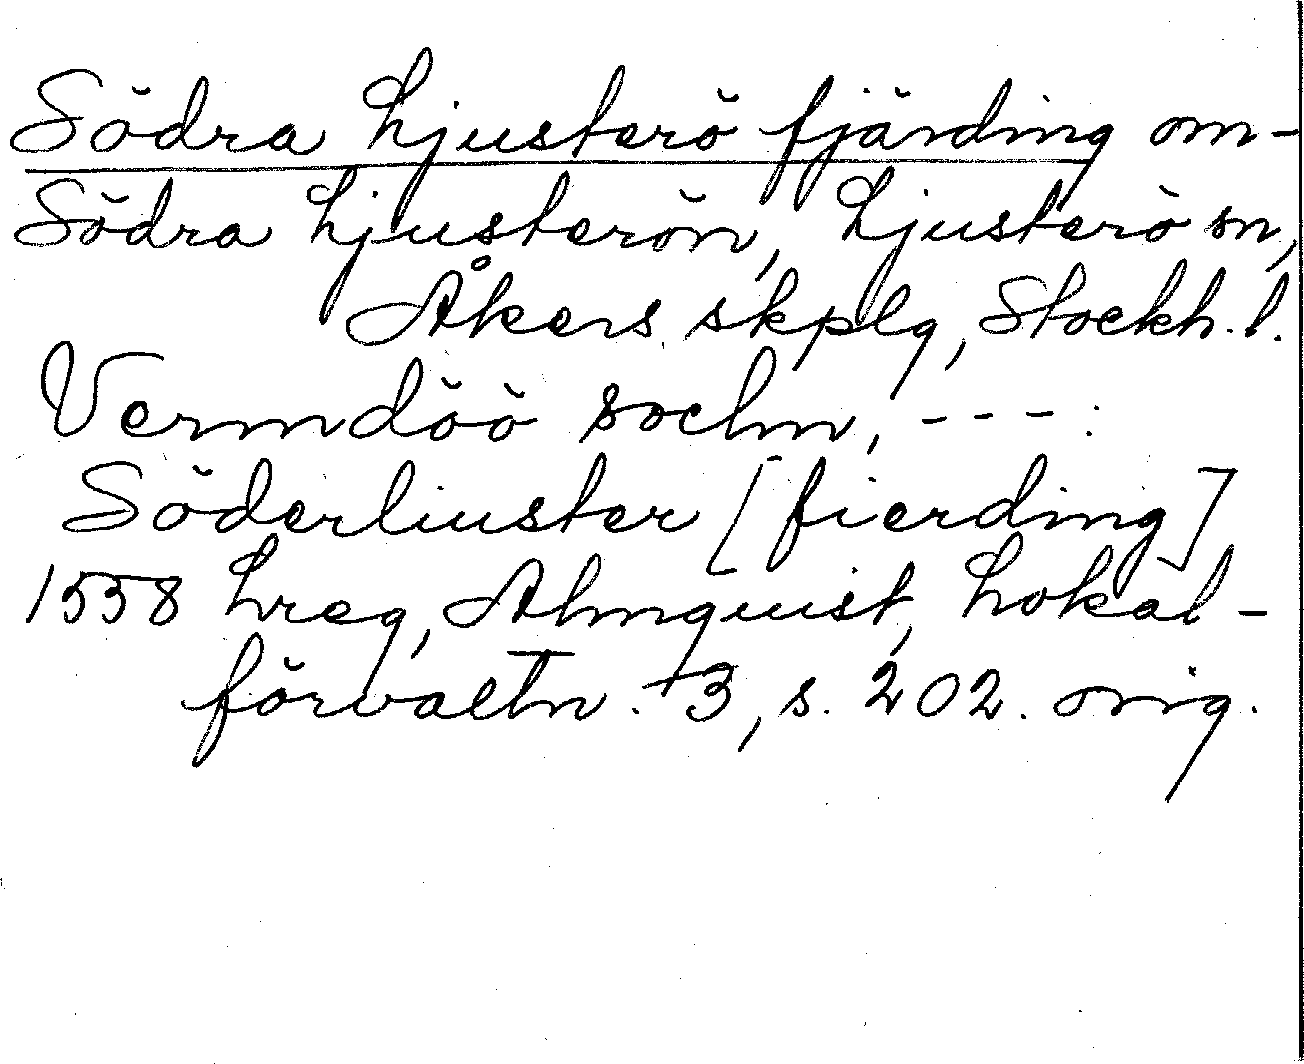 Södra Ljusterö fjärding om-
Södra Ljusterön, Ljusterö sn,
Åkers skplg, Stockh. l.
Vermdöö sochn, - - - :
Söderliuster [fierding]
1558 Lreg, Almquist, Lokal-
förvaltn. 3, s. 202. orig.